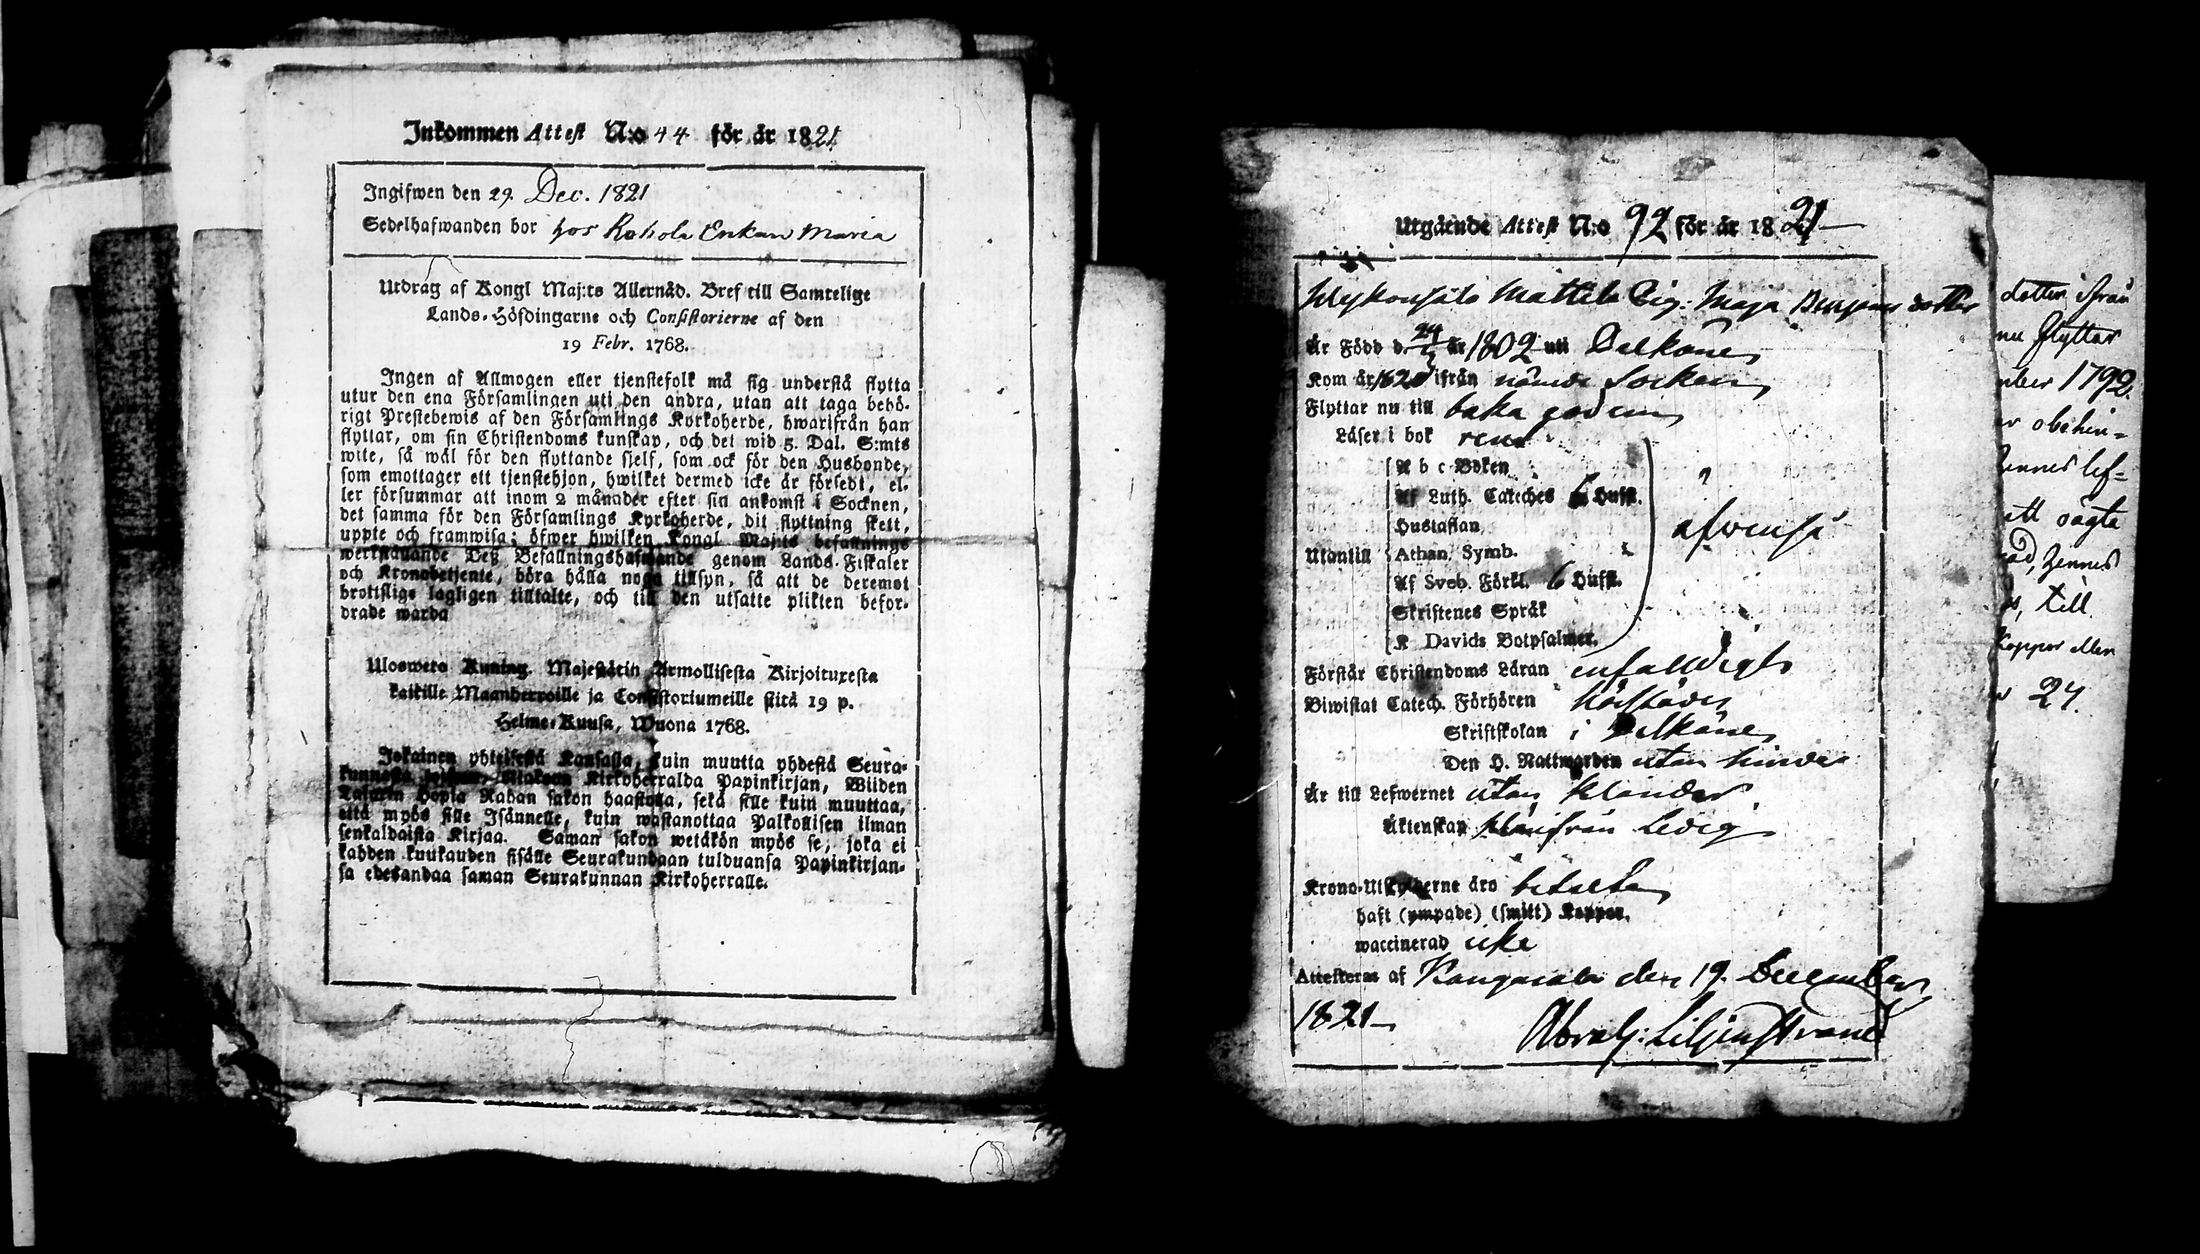 Inkommen Attest N:o 44 för år 1821
Ingifwen den 29. Dec. 1821
Sedelhafwanden bor hos Rohola Enkan Maria
Utdrag af Kongl Maj:ts Allernåd. Bref till Samtelige
Lands-Höfdingarne och Consistorierne af den
19 Febr. 1768.
Ingen af Allmogen eller tjenstefolk må sig understå flytta
utur den ena Församlingen uti den andra, utan att taga behö-
rigt Prestebewis af den Församlings Kyrkoherde, hwarifrån han
flyttar, om sin Christendoms kunskap, och det wid 5. Dal. S:mts
wite, så wäl för den flyttande sjelf, som ock för den Husbonde,
som emottager ett tjenstehjon, hwilket dermed icke är försedt, el-
ler försummar att inom 2 månader efter sin ankomst i Socknen,
det samma för den Församlings Kyrkoherde, dit flyttning skett,
uppte och framwisa; öfwer hwilken Kongl Maj:ts befallnings
werkställande Deß Befallningshafwande genom Lands-Fiskaler
och Kronobetjente, böra hålla noga tillsyn, så att de deremot
brottslige lagligen tilltalte, och till den utsatte plikten befor-
drade warda
Ulosweto Kuning. Majestätin Armollisesta Kirjoituxesta
kaikille Maanherroille ja Consistoriumeille siitä 19 p.
Helme-Kuusa, Wuona 1768.
Jokainen yhteisestä Kansasta, kuin muutta yhdestä Seura-
kunnasta toiseen, ottakoon Kirkoherralda Papinkirjan, Wiiden
Talarin Hopia Rahan sakon haastolla, sekä sille kuin muuttaa,
että myös sille Isännelle, kuin wastanottaa Palkollisen ilman
senkaldaista Kirjaa. Saman sakon wetäkön myös se, joka ei
kahden kuukauden sisälle Seurakundaan tulduansa Papinkirjan-
sa edesandaa saman Seurakunnan Kirkoherralle.
Utgående Attest N:o 92 för år 1821
Mattila Pig. Maja dotter
Är Född d. 24 år 1802 uti Pelkäne
Kom år 1820 ifrån nämde Socken
Flyttar nu till baka
Läser i bok rent
Utantill
A b c-Boken
Af Luth. Cateches 6 Hufst.
Hustaflan
Athan. Symb.
Af Sveb. Förkl. 6 Hufst.
Skriftenes Språk
K Davids Botpsalmer.
äfwenså
Förstår Christendoms Läran enfalldigt
Biwistat Catech. Förhören
Skriftskolan i Pelkäne
Den H. Nattwarden utan hinder
Är till Lefwernet utan klander
Äktenskap härifrån Ledig
Krono-Utskylderne äro betalta
haft (ympade) (smitt) Koppor.
waccinerad icke
Attesteras af Kangasala den 19. December
1821
Abrah: Liljenstrand
dotter ifrån
nu flyttar
mber 1792
er obehin-
hennes lef-
att
hennes
till
Koppor eller
24.